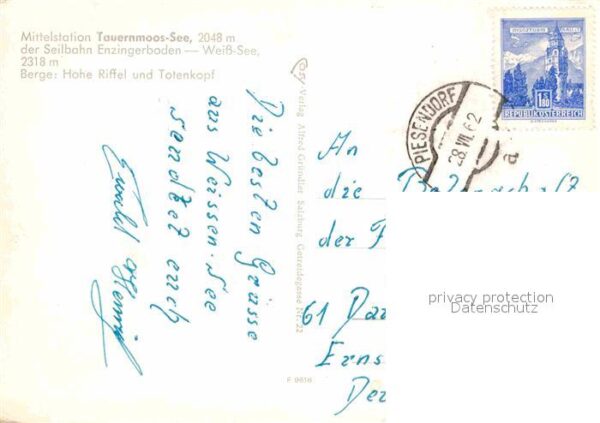 Mittelstation Tauernmoos-See, 2048 m
der Seilbahn Enzingerboden — Weiß-See,
2318 m
Berge: Hohe Riffel und Totenkopf
Die besten Grüsse
aus Weissen-See
sendet euch
Verlag Alfred Gründler Salzburg, Getreidegasse Nr. 22
F 9616
1.80
REPUBLIK ÖSTERREICH
PIESENDORF
28.VII.62
a
An
die
der F
61 Da
Erns
De
privacy protection
Datenschutz